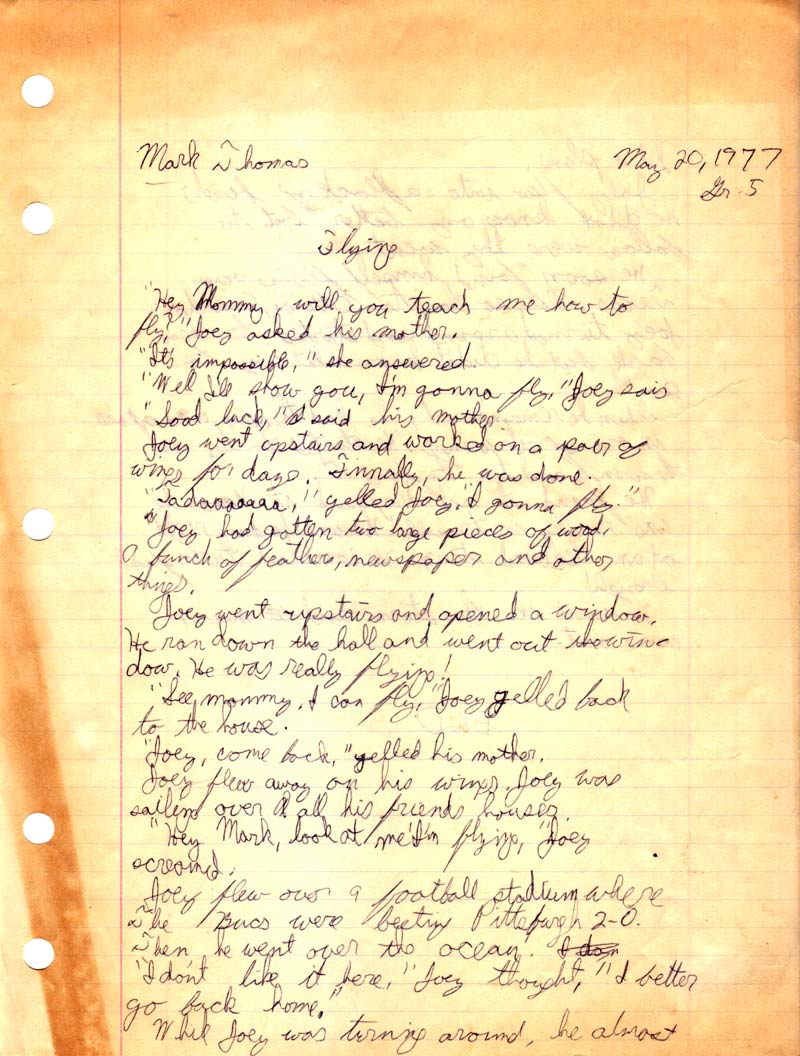 Mark Thomas
May 20, 1977
Gr. 5
Flying
"Hey Mommy, will you teach me how to
fly?" Joey asked his mother.
"It's impossible," she answered.
"Well I'll show you, I'm gonna fly," Joey sais
"Good luck," said his mother.
Joey went upstairs and worked on a pair of
wings for days. Finnally, he was done.
"Tadaaaaaaa," yelled Joey, "I gonna fly."
"Joey had gotten two large pieces of wood,
a bunch of feathers, newspaper and other
things.
Joey went upstairs and opened a window.
He ran down the hall and went out the win-
dow. He was really flying!
"See, mommy, I can fly," Joey yelled back
to the house.
"Joey, come back," yelled his mother.
Joey flew away on his wings. Joey was
sailing over all his friends houses.
"Hey Mark, look at me I'm flying," Joey
screamd.
Joey flew over a football stadium where
The Bucs were beeting Pittsburgh 2-0.
Then he went over the ocean.
"I don't like it here," Joey thought, "I better
go back home."
While Joey was turning around, he almost